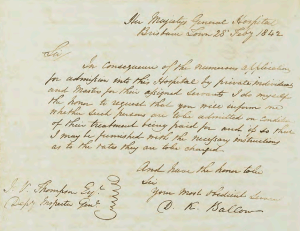 Her Majestys General Hospital
Brisbane Town 28 July 1842
Sir
In consequence of the numerous applications
for admission into this Hospital by private individuals
and Masters for their assigned Servants I do myself
the honor to request that you will inform me
whether such persons are to be admitted on condition
of their treatment being paid for and if so that
I may be furnished with the necessary instructions
as to the rates they are to be charged.
And have the honor to be
Sir
your most obedient
D. K. Ballow
J. V. Thompson Esqr
Depy Inspector Genl